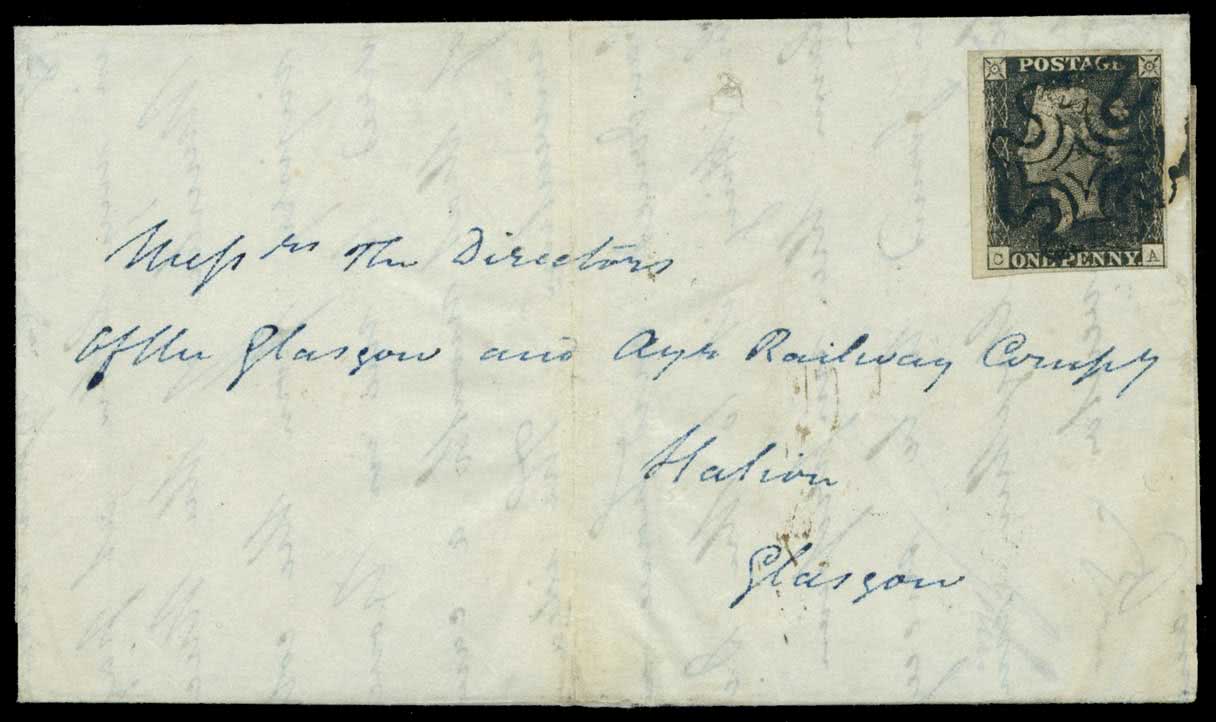 POSTAGE
C ONE PENNY A
Messrs The Directors
Of the Glasgow and Ayr Railway Compy
Station
Glasgow